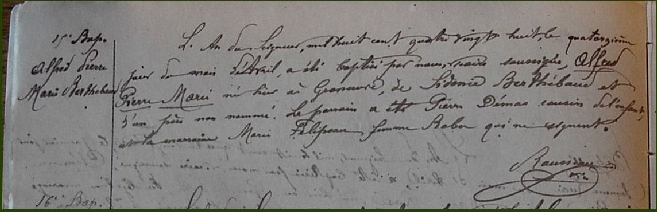 15e Bap.
Alfred Pierre
Marie Berthebaud
L'An du Seigneur, mil huit cent quatre vingt huit le quatorzième
jour du mois d'Avril a été baptisé par nous, vicaire soussigné, Alfred
Pierre Marie né hier à de Sidonie Berthebaud et
d'un père non nommé. Le parrain a été Pierre Dimas cousin de l'enfant
et la marraine Marie Filipeau femme Rabou qui ne signent.
16e Bap.